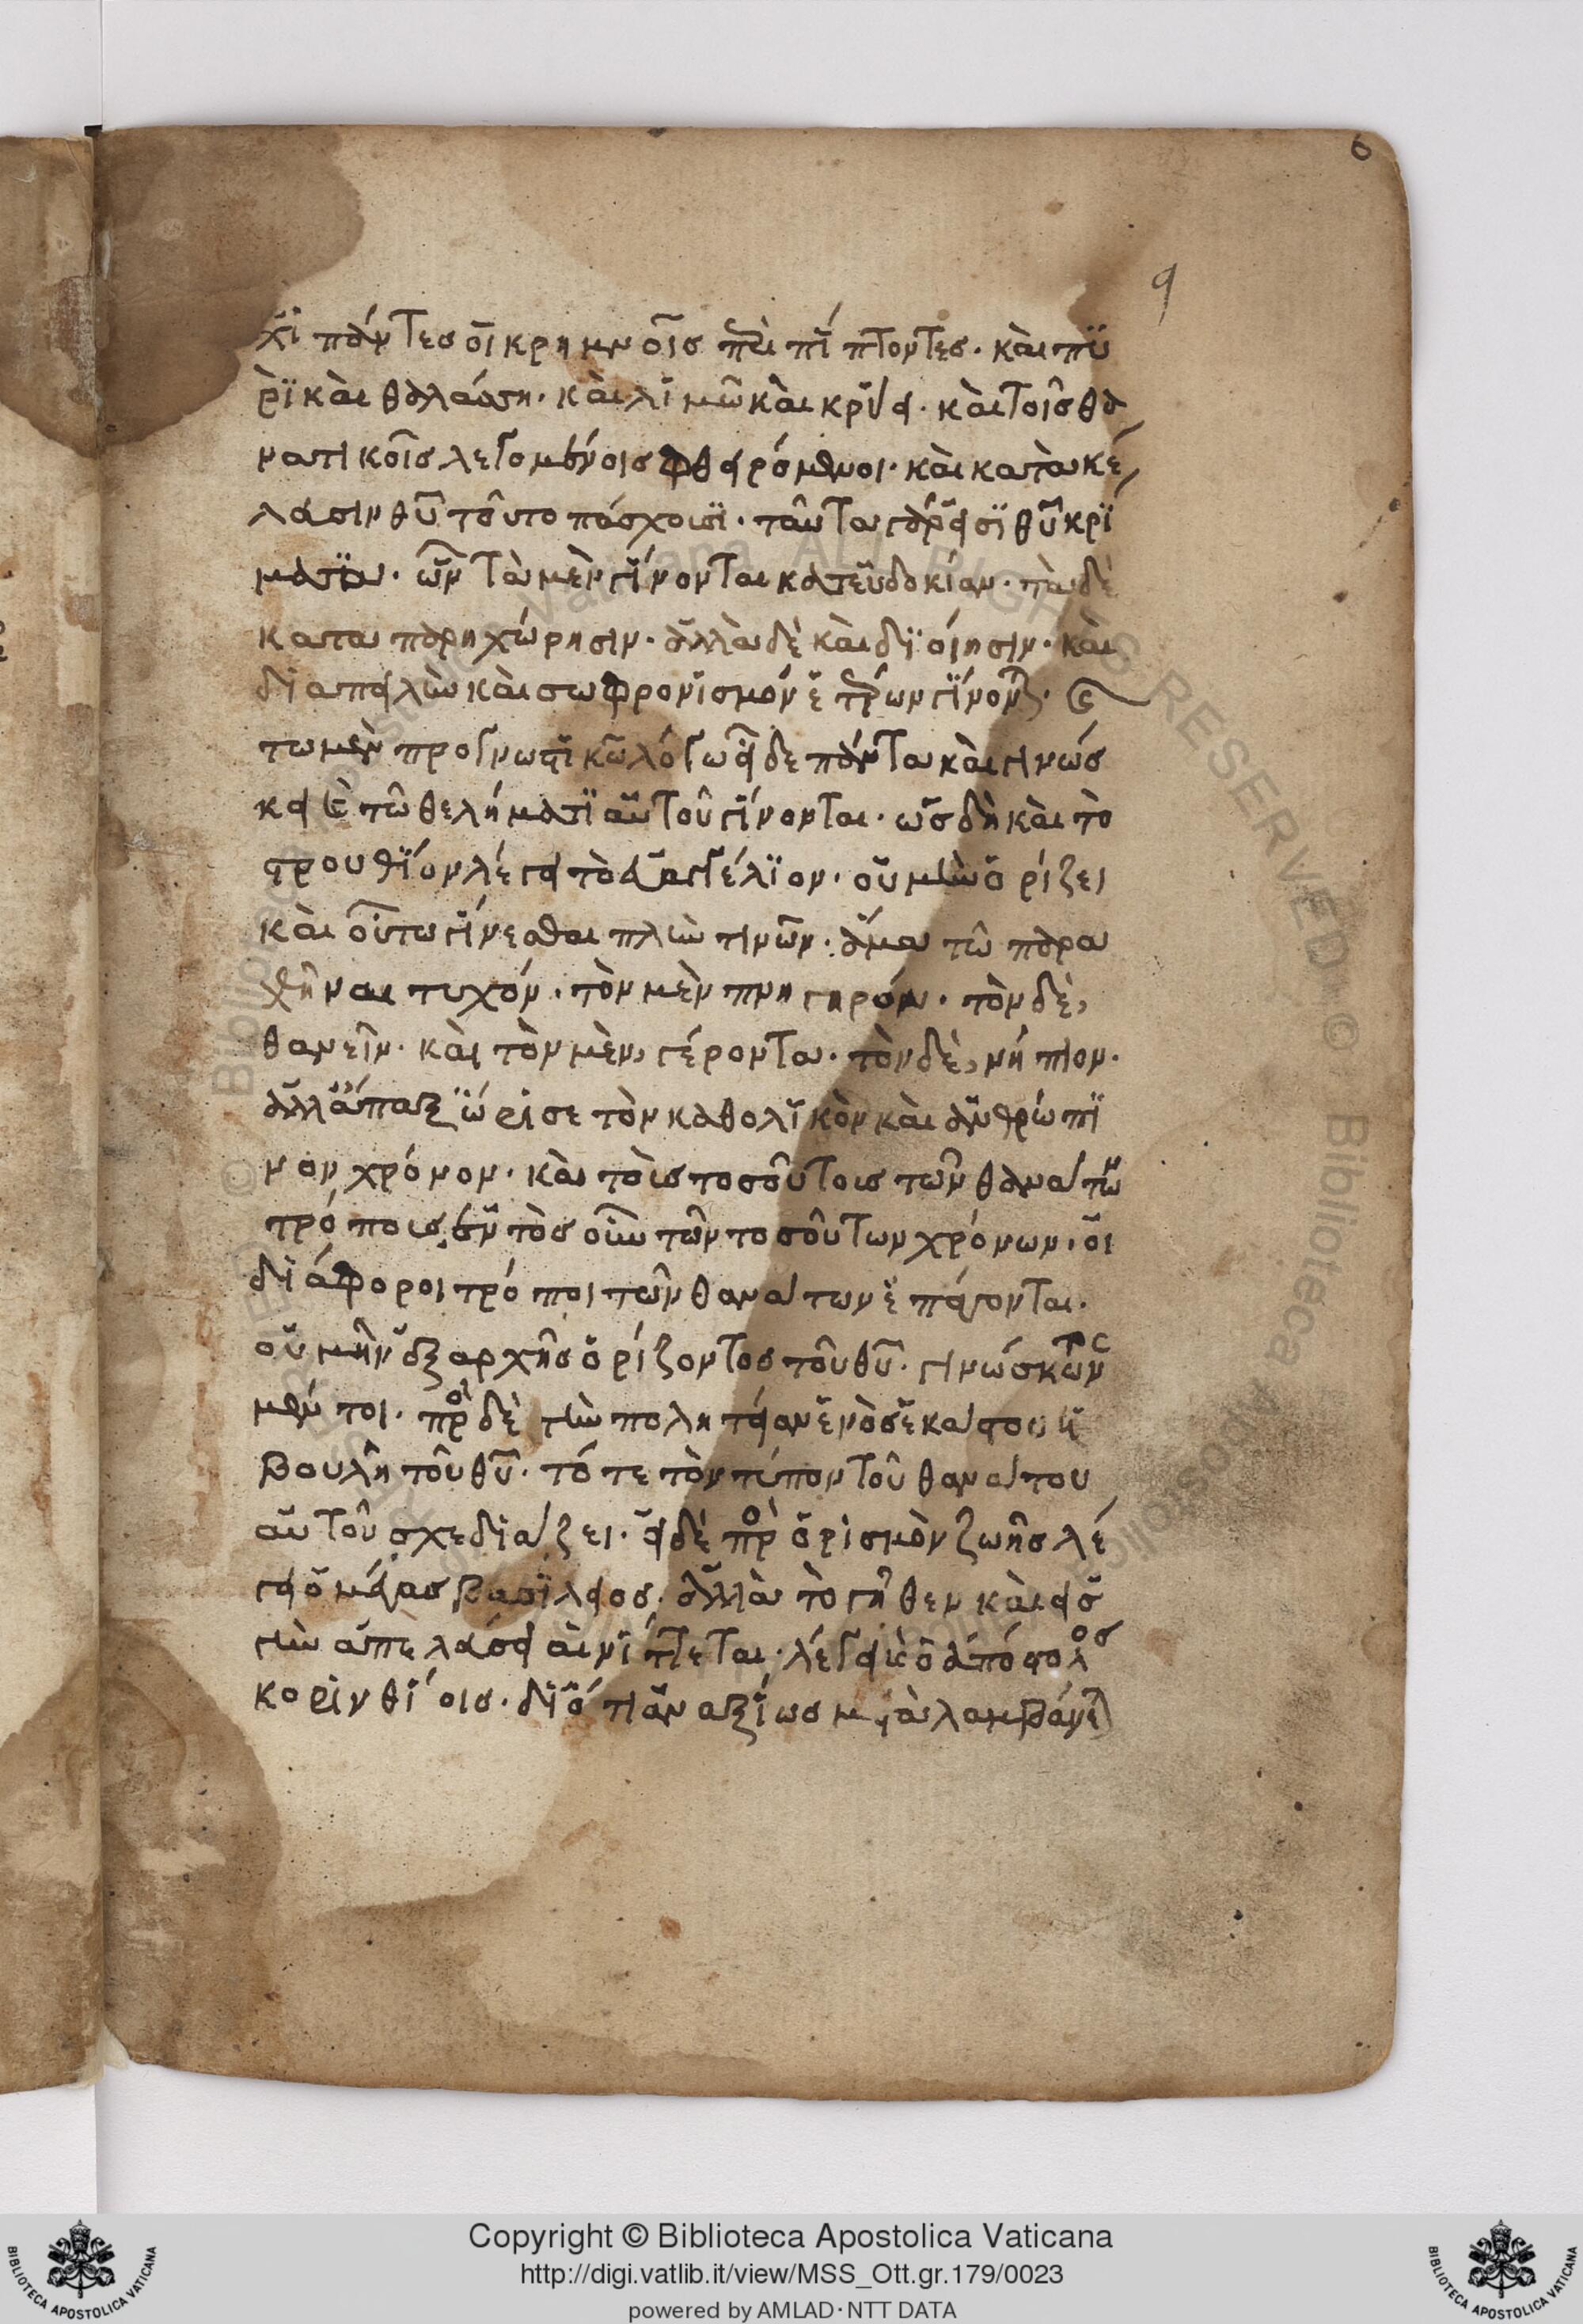 6
9
χῒ πάντες οἱ κρημνοῖς περιπίπτοντες. καὶ πϋ
ρὶ καὶ θαλάσση. καὶ λιμῶ καὶ κρύει. καὶ τοῖς θα
νατικοῖς λεγομένοις φθειρόμενοι. καὶ κατὰ κέ
λευσιν θυ τοῦτο πάσχουσι. ταῦτα γὰρ εἰσὶ θυ κρί
ματα. ὧν τὰ μὲν γίνονται κατ εὐδοκίαν. τὰ δὲ
κατα παραχώρησιν. ἄλλα δὲ καὶ δι οἴησιν. καὶ
δι απειλὴν καὶ σωφρονισμὸν ἑτέρων γίνονται.
τω μὲν προγνωστικῶ λόγω οἶδε πάντα καὶ γινώσ
κει ἐν τῶ θελήματι αὐτοῦ γίνονται. ὡς δὴ καὶ το
στρουθίον λέγει τὸ εὐαγγέλιον. οὐ μὴν ὁρίζει
καὶ οὕτω γίνεσθαι πλὴν τινῶν. ἅμα τῶ παρα
χθῆναι τυχόν. τὸν μὲν πνιγηρόν. τὸν δὲ,
θανεῖν. καὶ τὸν μὲν, γέροντα. τὸν δὲ, νήπιον.
ἀλλ ἅπαξ ὥρισε τὸν καθολικὸν καὶ ἀνθρώπι
νον χρόνον. καὶ τοῖς τοσούτοις τῶν θανάτων
τρόποις. ἐντὸς οὖν τῶν τοσούτων χρόνων, οἱ
διάφοροι τρόποι τῶν θανάτων ἐπάγονται.
οὐ μὴν ἐξ αρχῆς ὁρίζοντος τοῦ θυ. γινώσκων
μέντοι. πρὸς δὲ τὴν πολιτείαν ἑνὸς ἑκάστου ἡ
βουλὴ τοῦ θυ. τότε τὸν τύπον τοῦ θανάτου
αὐτοῦ σχεδιάζει. εἰ δὲ πρὸ ὁρισμὸν ζωῆς λέ
γει ὁ μέγας βασίλειος. ἀλλὰ τὸ γῆθεν καὶ εἰς
γὴν ἀπελεύσει αἰνίττεται. λέγει κ ὁ ἀπόστολος
κορινθίοις. διότι ἀναξίως μεταλαμβάνετε
Copyright © Biblioteca Apostolica Vaticana
http://digi.vatlib.it/view/MSS_Ott.gr.179/0023
powered by AMLAD·NTT DATA
BIBLIOTECA APOSTOLICA VATICANA
BIBLIOTECA APOSTOLICA VATICANA